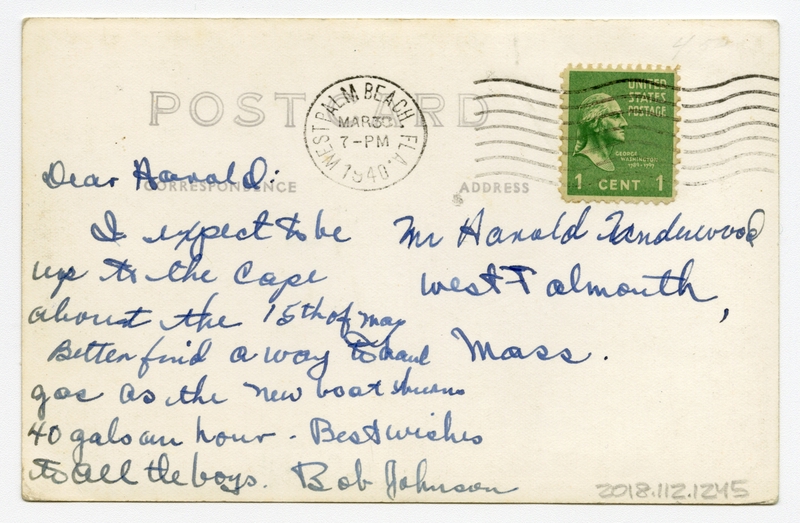 POST CARD
WEST PALM BEACH, FLA.
MAR 30
7-PM
1940
UNITED
STATES
POSTAGE
GEORGE
WASHINGTON
1789-1797
1 CENT 1
CORRESPONDENCE
ADDRESS
Dear Harold:
I expect to be
up to the Cape
about the 15th of May
Better find a way to haul
gas as the new boat burns
40 gals an hour - Best wishes
to all the boys. Bob Johnson
Mr Harold Underwood
West Falmouth,
Mass.
2018.112.1245